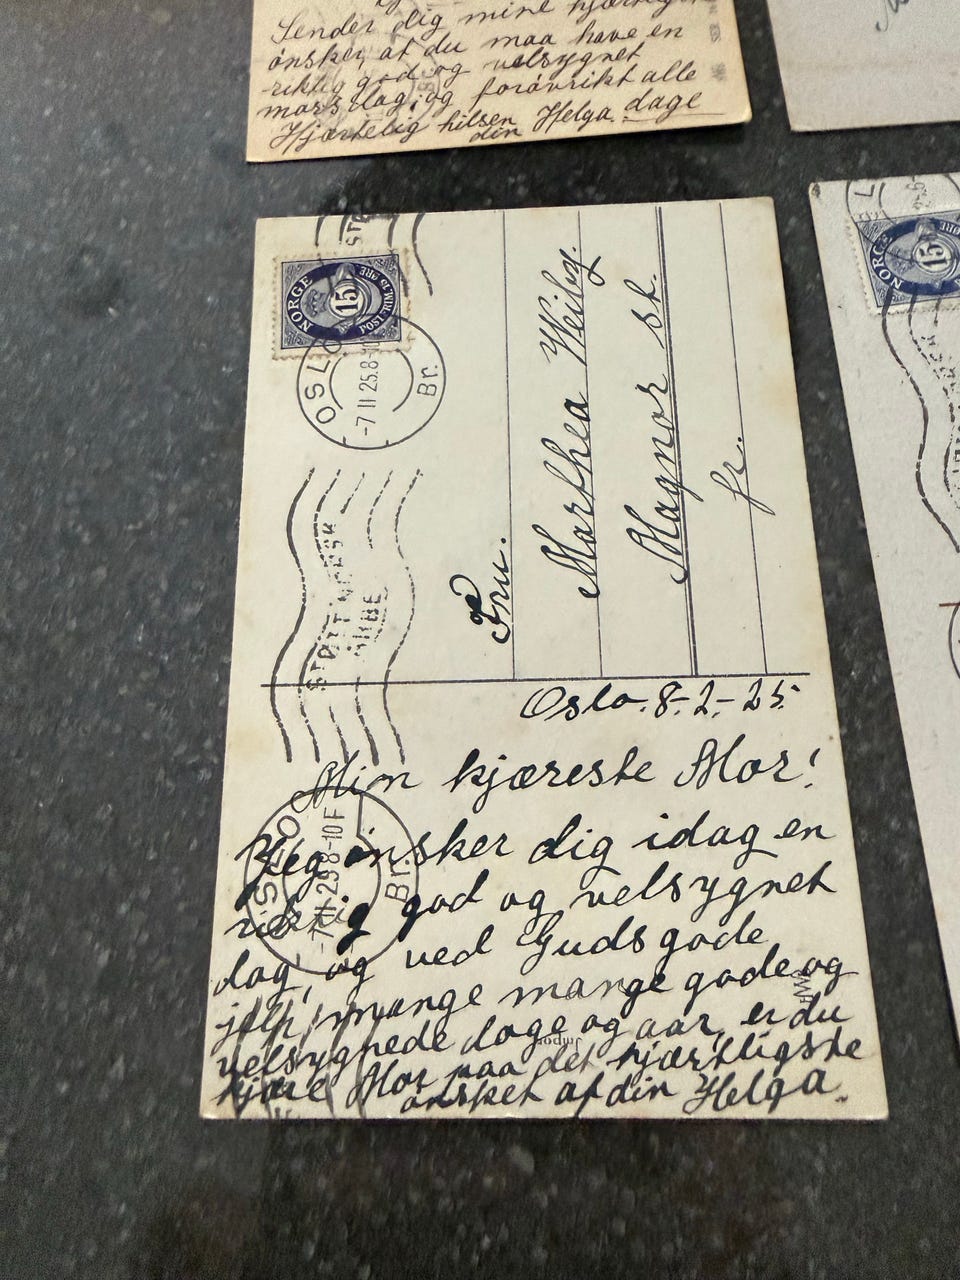 Sender dig mine
ønsker, at du maa have en
riktig god og velsygnet
morsdag, og forøvrikt alle
dage
Hjærtelig hilsen
din Helga.
NORGE
15
POST-FRIM. 15 ØRE
OSLO
-7 II 25.8-10
Br.
STØTT NORSK
ARBE
Fru.
Marthea Weiby.
Magnor st.
fr.
Oslo. 8-2-25.
Min kjæreste Mor!
Jeg ønsker dig idag en
riktig god og velsygnet
dag, og ved Guds gode
jelp, mange mange gode og
velsygnede dage og aar, er du
kjære Mor, maa det hjærtligste
ønsket af din Helga.
OSLO
-7 II 25.8-10 F
Br.
NORGE
15